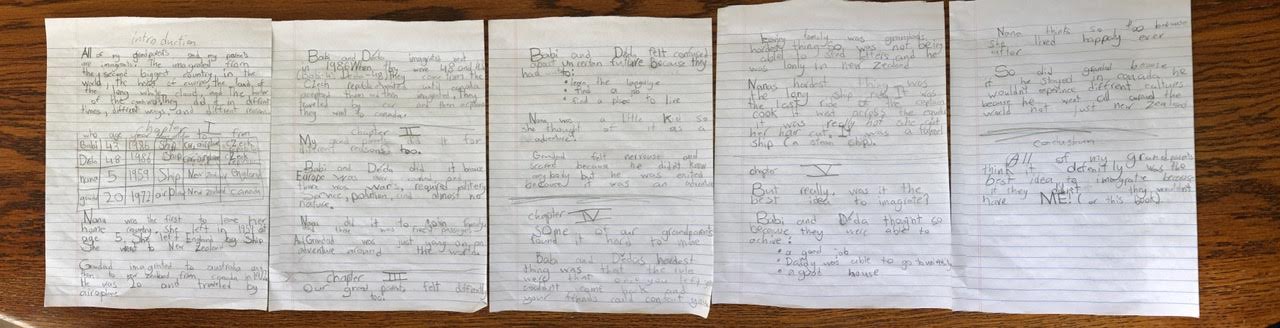 introduction
All of my grandparents and my parents
are imagrants. The imagrated from
the second biggest country in the
world, the heart of europe, the land of
the long white and the
of the commonly They did it in different
times, different ways, and different reasons.
chapter I
who age year from
Babi 47 1986 Ship czech
Deda 48 1986 Ship czech
nana 5 1959 Ship New zealand England
grandad 20 1972 airplane New zealand canada
Nana was the first to leave her
home country. She left in 1959 at
age 5. She left England by Ship
She went to New Zealand
Grandad imagrated to australia and
then to new zealand from canada in 1972
He was 20 and traveled by
airoplane
Babi and Déda imagrated
in 1986 When they were 48 and 47
They came from the
Czech republic
from and then
traveled by car and then airplane
they went to canada
chapter II
My grandparents did it for
different reasons too.
Babi and Deda did it because
Europe was and
there was wars, required military
service, polution, and almost no
nature.
Nana did it to join family
that was
And Grandad was just going on an
adventure around the world
chapter III
Our grandparents felt different
too!
Babi and Déda felt confused
about uncertain future because they
had to:
• learn the language
• find a job
• find a place to live
Nana was a little kid so
she thought of it as a
adventure.
Grandad felt nervouse and
scared because he didn't know
anybody but he was exited
because it was an adventure
chapter IV
Some of our grandparents
found it hard to move
Babi and Dédas hardest
thing was that the rule
were that once you left you
couldn't come back and
your friends could contact you
family was grandads
hardest thing so was not being
able to and he
was lonly in new Zealand
Nanas hardest thing was
the long ship ride. It was
the last ride of the captain
cook it went across the
it was really hot she
her hair cut. It was a
ship (a steam ship.)
chapter V
But really, was it the
best idea to imagrate?
Babi and Déda thought so
because they were able to
achive:
• a good job
• Daddy was able to go to university
• a good house
Nana thinks so too because
she lived happaly ever
after
So did grandad because
if he stayed in canada he
wouldn't experience different cultures
because he went all around the
world not just new Zealand
conclusion
All of my grandparents
think it defenitly was the
best idea to immigrate because
if they didn't they wouldn't
have ME! (or this book)